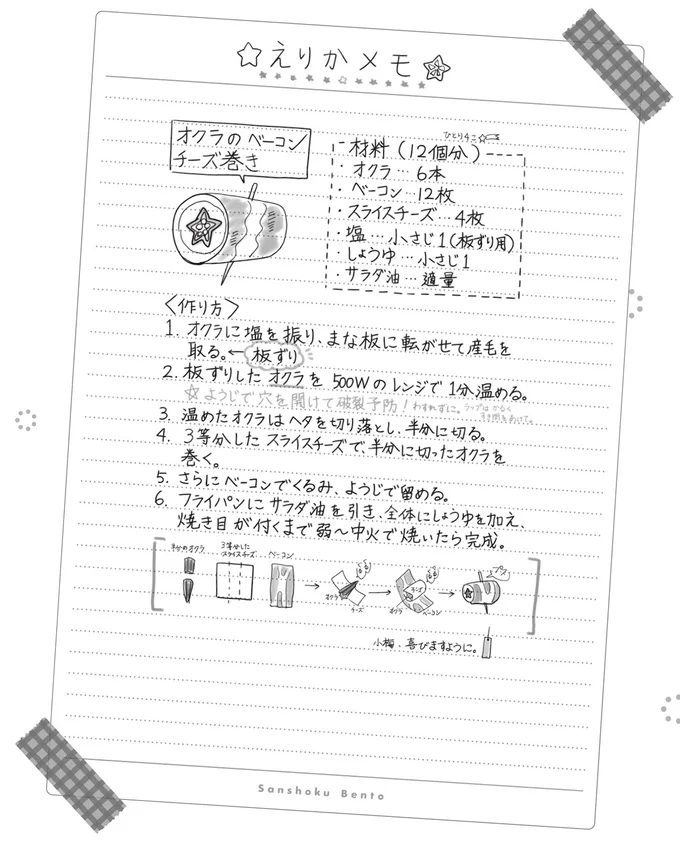 ☆えりかメモ
オクラの ベーコン
チーズ巻き
ひとり4こ☆
材料(12個分)
・オクラ… 6本
・ベーコン… 12枚
・スライスチーズ… 4枚
・塩… 小さじ1(板ずり用)
・しょうゆ… 小さじ1
・サラダ油… 適量
〈作り方〉
1. オクラに塩を振り、まな板に転がせて産毛を
取る。← 板ずり
2. 板ずりした オクラを 500Wのレンジで 1分温める。
☆ようじで穴を開けて破裂予防!わすれずに。ラップは かるく
すき間をあけて。
3. 温めたオクラは ヘタを切り落とし、半分に切る。
4. 3等分した スライスチーズで、半分に切ったオクラを
巻く。
5. さらに ベーコンでくるみ、ようじで留める。
6. フライパンに サラダ油を引き、全体にしょうゆを加え、
焼き目が付くまで 弱〜中火で 焼いたら完成。
半分のオクラ
3等分した
スライスチーズ
ベーコン
オクラ
チーズ
チーズ
オクラ
ベーコン
プスッ
小梅、喜びますように。
Sanshoku Bento